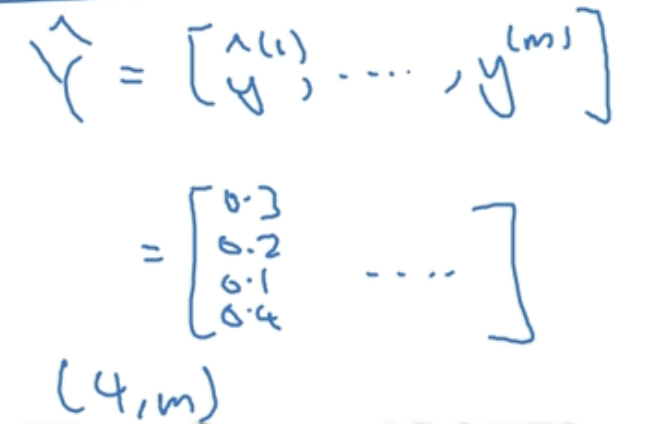 Ŷ = [ŷ⁽¹⁾, ...., y⁽ᵐ⁾]
= [0.3
0.2 ....
0.1
0.4 ]
(4,m)